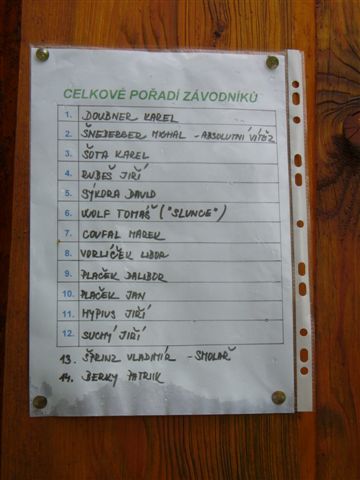 CELKOVÉ POŘADÍ ZÁVODNÍKŮ
1. DOUBNER KAREL
2. ŠNEBERGER MICHAL - ABSOLUTNÍ VÍTĚZ
3. ŠOTA KAREL
4. RUBEŠ JIŘÍ
5. SÝKORA DAVID
6. WOLF TOMÁŠ ("SLUNCE")
7. COUFAL MAREK
8. VORLÍČEK LIBOR
9. PLAČEK DALIBOR
10. PLAČEK JAN
11. HYPIUS JIŘÍ
12. SUCHÝ JIŘÍ
13. ŠPRINZ VLADIMÍR - SMOLAŘ
14. BERKY PATRIK